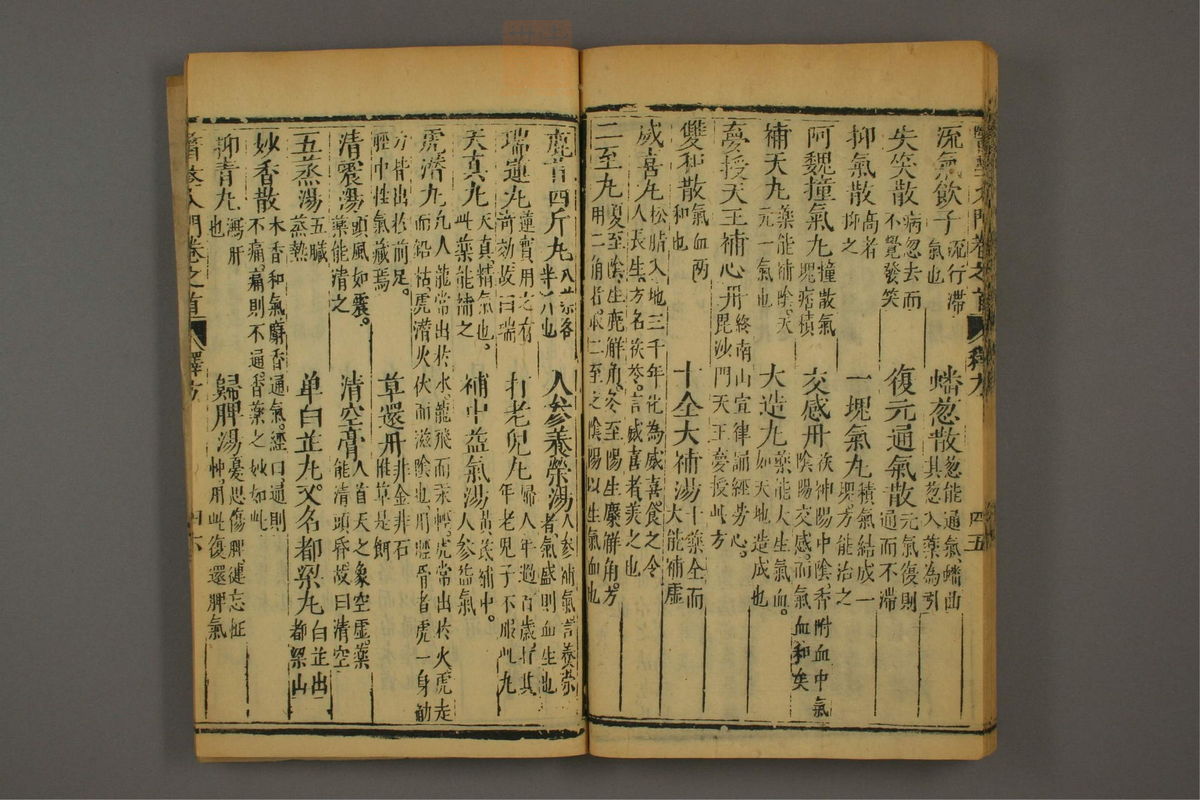 醫學入門 卷之首 釋方 四五
流氣飲子 流行滯氣也 蟠葱散 葱能通氣蟠曲其葱入藥為引
失笑散 病忽去而不覺發笑 復元通氣散 元氣復則通而不滯
抑氣散 高者抑之 一塊氣丸 積氣結成一塊方能治之
阿魏撞氣丸 撞散氣塊痞積 交感丹 茯神陽中陰香附血中氣陰陽交感而氣血和矣
補天丸 藥能補陰天元一氣也 大造丸 藥能大生氣血如天地造成也
夢授天王補心丹 終南山宣律誦經勞心毘沙門天王夢授此方
雙和散 氣血兩和也 十全大補湯 十藥全而大能補虛
威喜丸 松脂入地三千年化為威喜食之令人長生方名茯苓言威喜者美之也
二至丸 夏至陰生鹿解角冬至陽生麋解角方用二角者取二至之陰陽以生氣血也
鹿茸四斤丸 八味各半斤也 人參養榮湯 人參補氣言養榮者氣盛則血生也
瑞蓮丸 蓮實用之有奇効故曰瑞 打老兒丸 婦人年過百歲打其年老兒子不服此丸
天真丸 天真精氣也此藥能補之 補中益氣湯 黃芪補中人參益氣
虎潛丸 凡人龍常出於水龍飛而汞輕虎常出於火虎走而鉛枯虎潛火伏而滋陰也用脛骨者虎一身觔
力皆出於前足脛中性氣藏焉 草還丹 非金非石惟草是餌
清震湯 頭風如震藥能清之 清空膏 人首天之象空虛藥能清頭昏故曰清空
五蒸湯 五臟蒸熱 单白芷丸又名都梁丸 白芷出都梁山
妙香散 木香和氣麝香通氣經曰通則不痛痛則不通香藥之妙如此
抑青丸 瀉肝也 歸脾湯 憂思傷脾健忘怔忡用此復還脾氣
醫學入門卷之首 釋方 四六